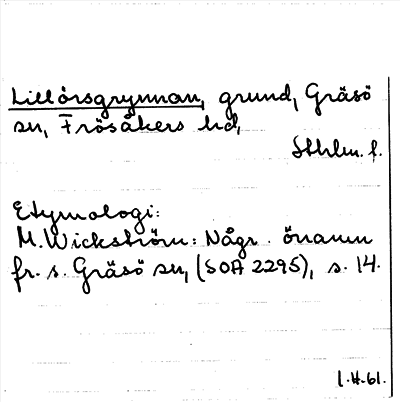 Lillörsgrynnan, grund, Gräsö
sn, Frösåkers hd,
Sthlm. f.
Etymologi:
M. Wickström: Någr. önamn
fr. s. Gräsö sn, (SOA 2295), s. 14.
1.H.61.